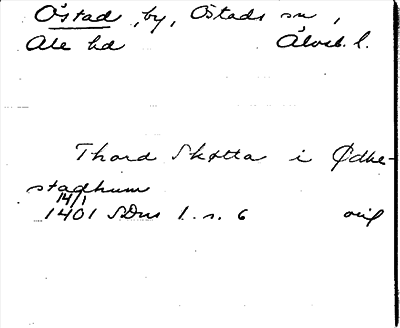 Östad, by, Östads sn,
Ale hd Älvsb. l.
Thord Skøtta i Ødhe-
stadhum
14/1
1401 SDns 1. s. 6 orig